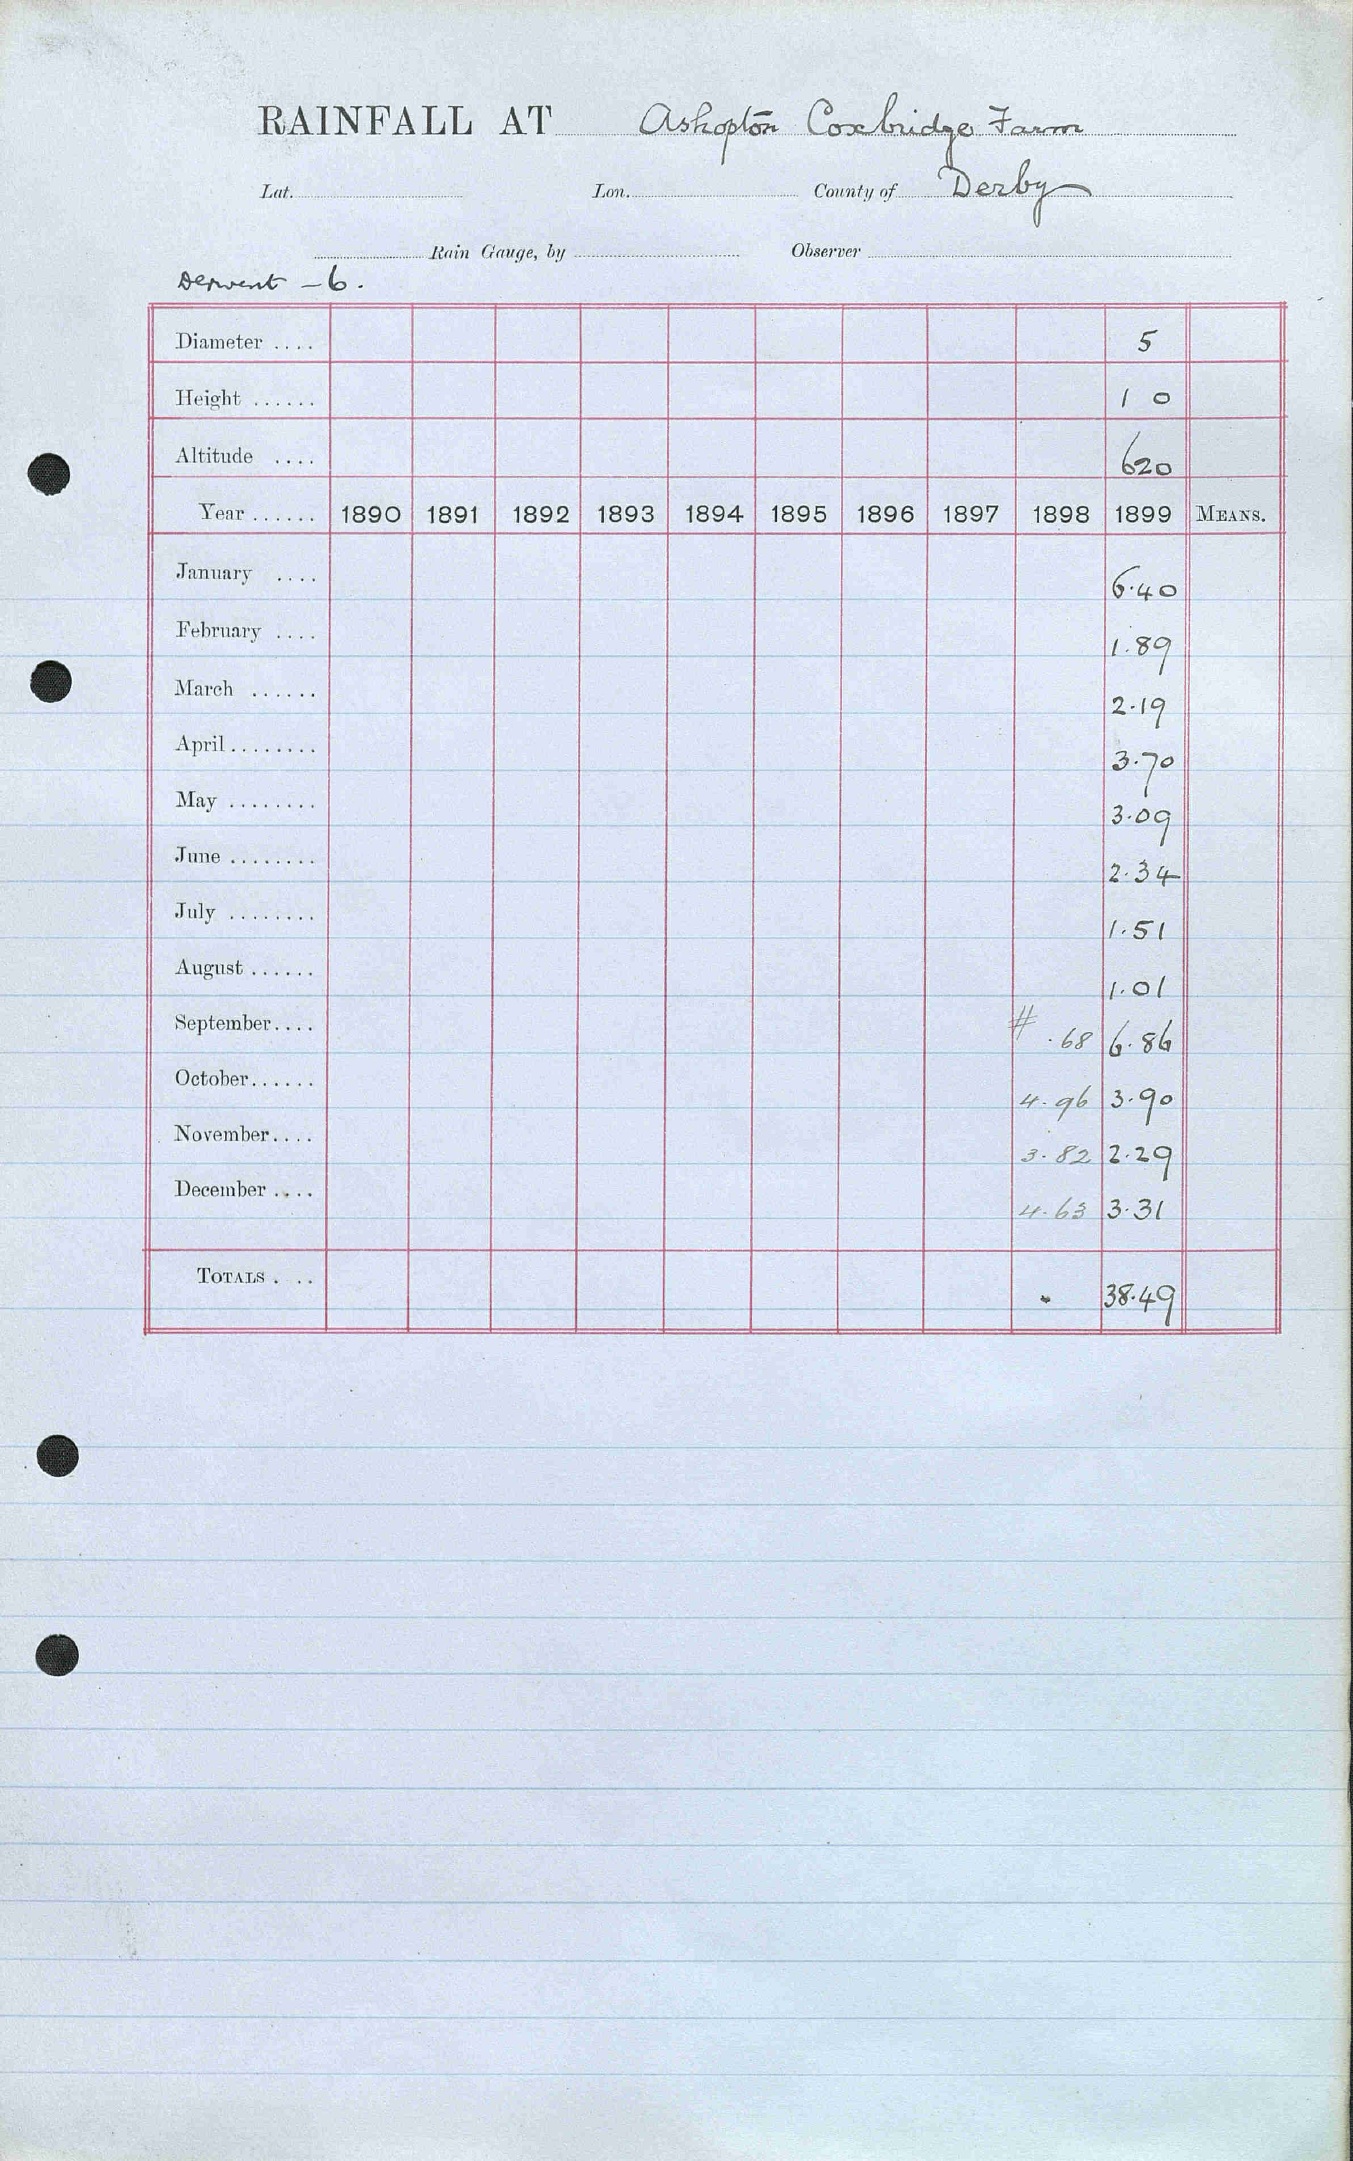 RAINFALL AT Ashopton Coxbridge Farm
Lat. Lon. County of Derby
Rain Gauge, by Observer
Derwent - 6.
Diameter .... 5
Height ...... 1 0
Altitude .... 620
Year ...... 1890 1891 1892 1893 1894 1895 1896 1897 1898 1899 MEANS.
January .... 6.40
February .... 1.89
March ...... 2.19
April ........ 3.70
May ........ 3.09
June ........ 2.34
July ........ 1.51
August ...... 1.01
September .... # .68 6.86
October ...... 4.96 3.90
November .... 3.82 2.29
December .... 4.63 3.31
TOTALS . .. 38.49